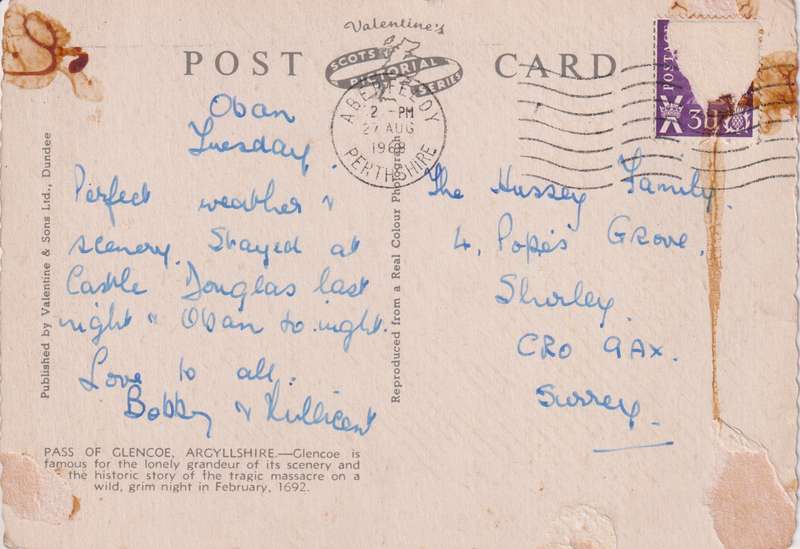 Valentine's
POST CARD
SCOTS
PICTORIAL
SERIES
ABERFELDY
2 - PM
27 AUG
1968
PERTHSHIRE
POSTAGE
3D
Published by Valentine & Sons Ltd., Dundee
Oban
Tuesday.
Perfect weather &
scenery. Stayed at
Castle Douglas last
night & Oban to-night.
Love to all.
Bobby & Millicent
PASS OF GLENCOE, ARGYLLSHIRE.—Glencoe is
famous for the lonely grandeur of its scenery and
the historic story of the tragic massacre on a
wild, grim night in February, 1692.
Reproduced from a Real Colour Photograph
The Hussey Family.
4, Pope's Grove,
Shirley.
CRO 9AX.
Surrey.